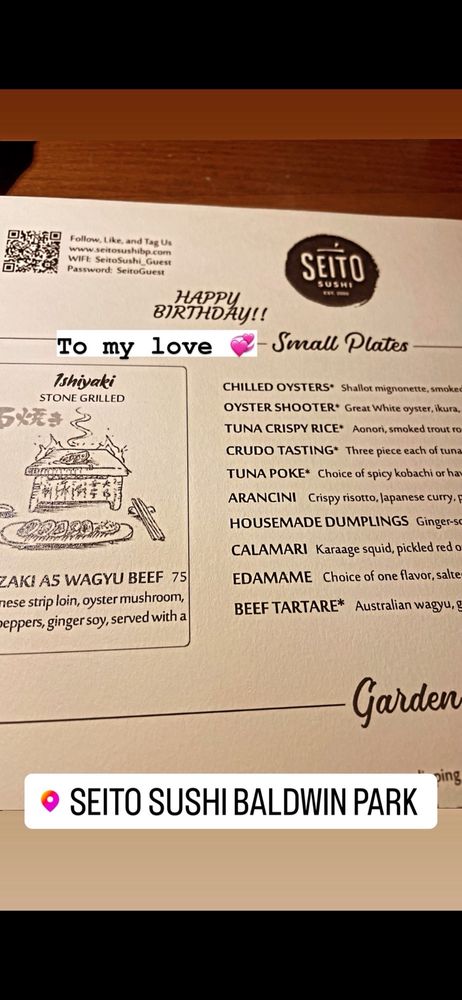 Follow, Like, and Tag Us
www.seitosushibp.com
WIFI: SeitoSushi_Guest
Password: SeitoGuest
SEITO
SUSHI
EST. 2000
HAPPY
BIRTHDAY!!
To my love 💞
Small Plates
Ishiyaki
STONE GRILLED
焼き
WAGYU BEEF 75
strip loin, oyster mushroom,
peppers, ginger soy, served with a
CHILLED OYSTERS* Shallot mignonette, smoked
OYSTER SHOOTER* Great White oyster, ikura,
TUNA CRISPY RICE* Aonori, smoked trout
CRUDO TASTING* Three piece each of tuna
TUNA POKE* Choice of spicy kobachi or
ARANCINI Crispy risotto, Japanese curry,
HOUSEMADE DUMPLINGS
CALAMARI Karaage squid, pickled red
EDAMAME Choice of one flavor,
BEEF TARTARE* Australian wagyu,
Garden
SEITO SUSHI BALDWIN PARK